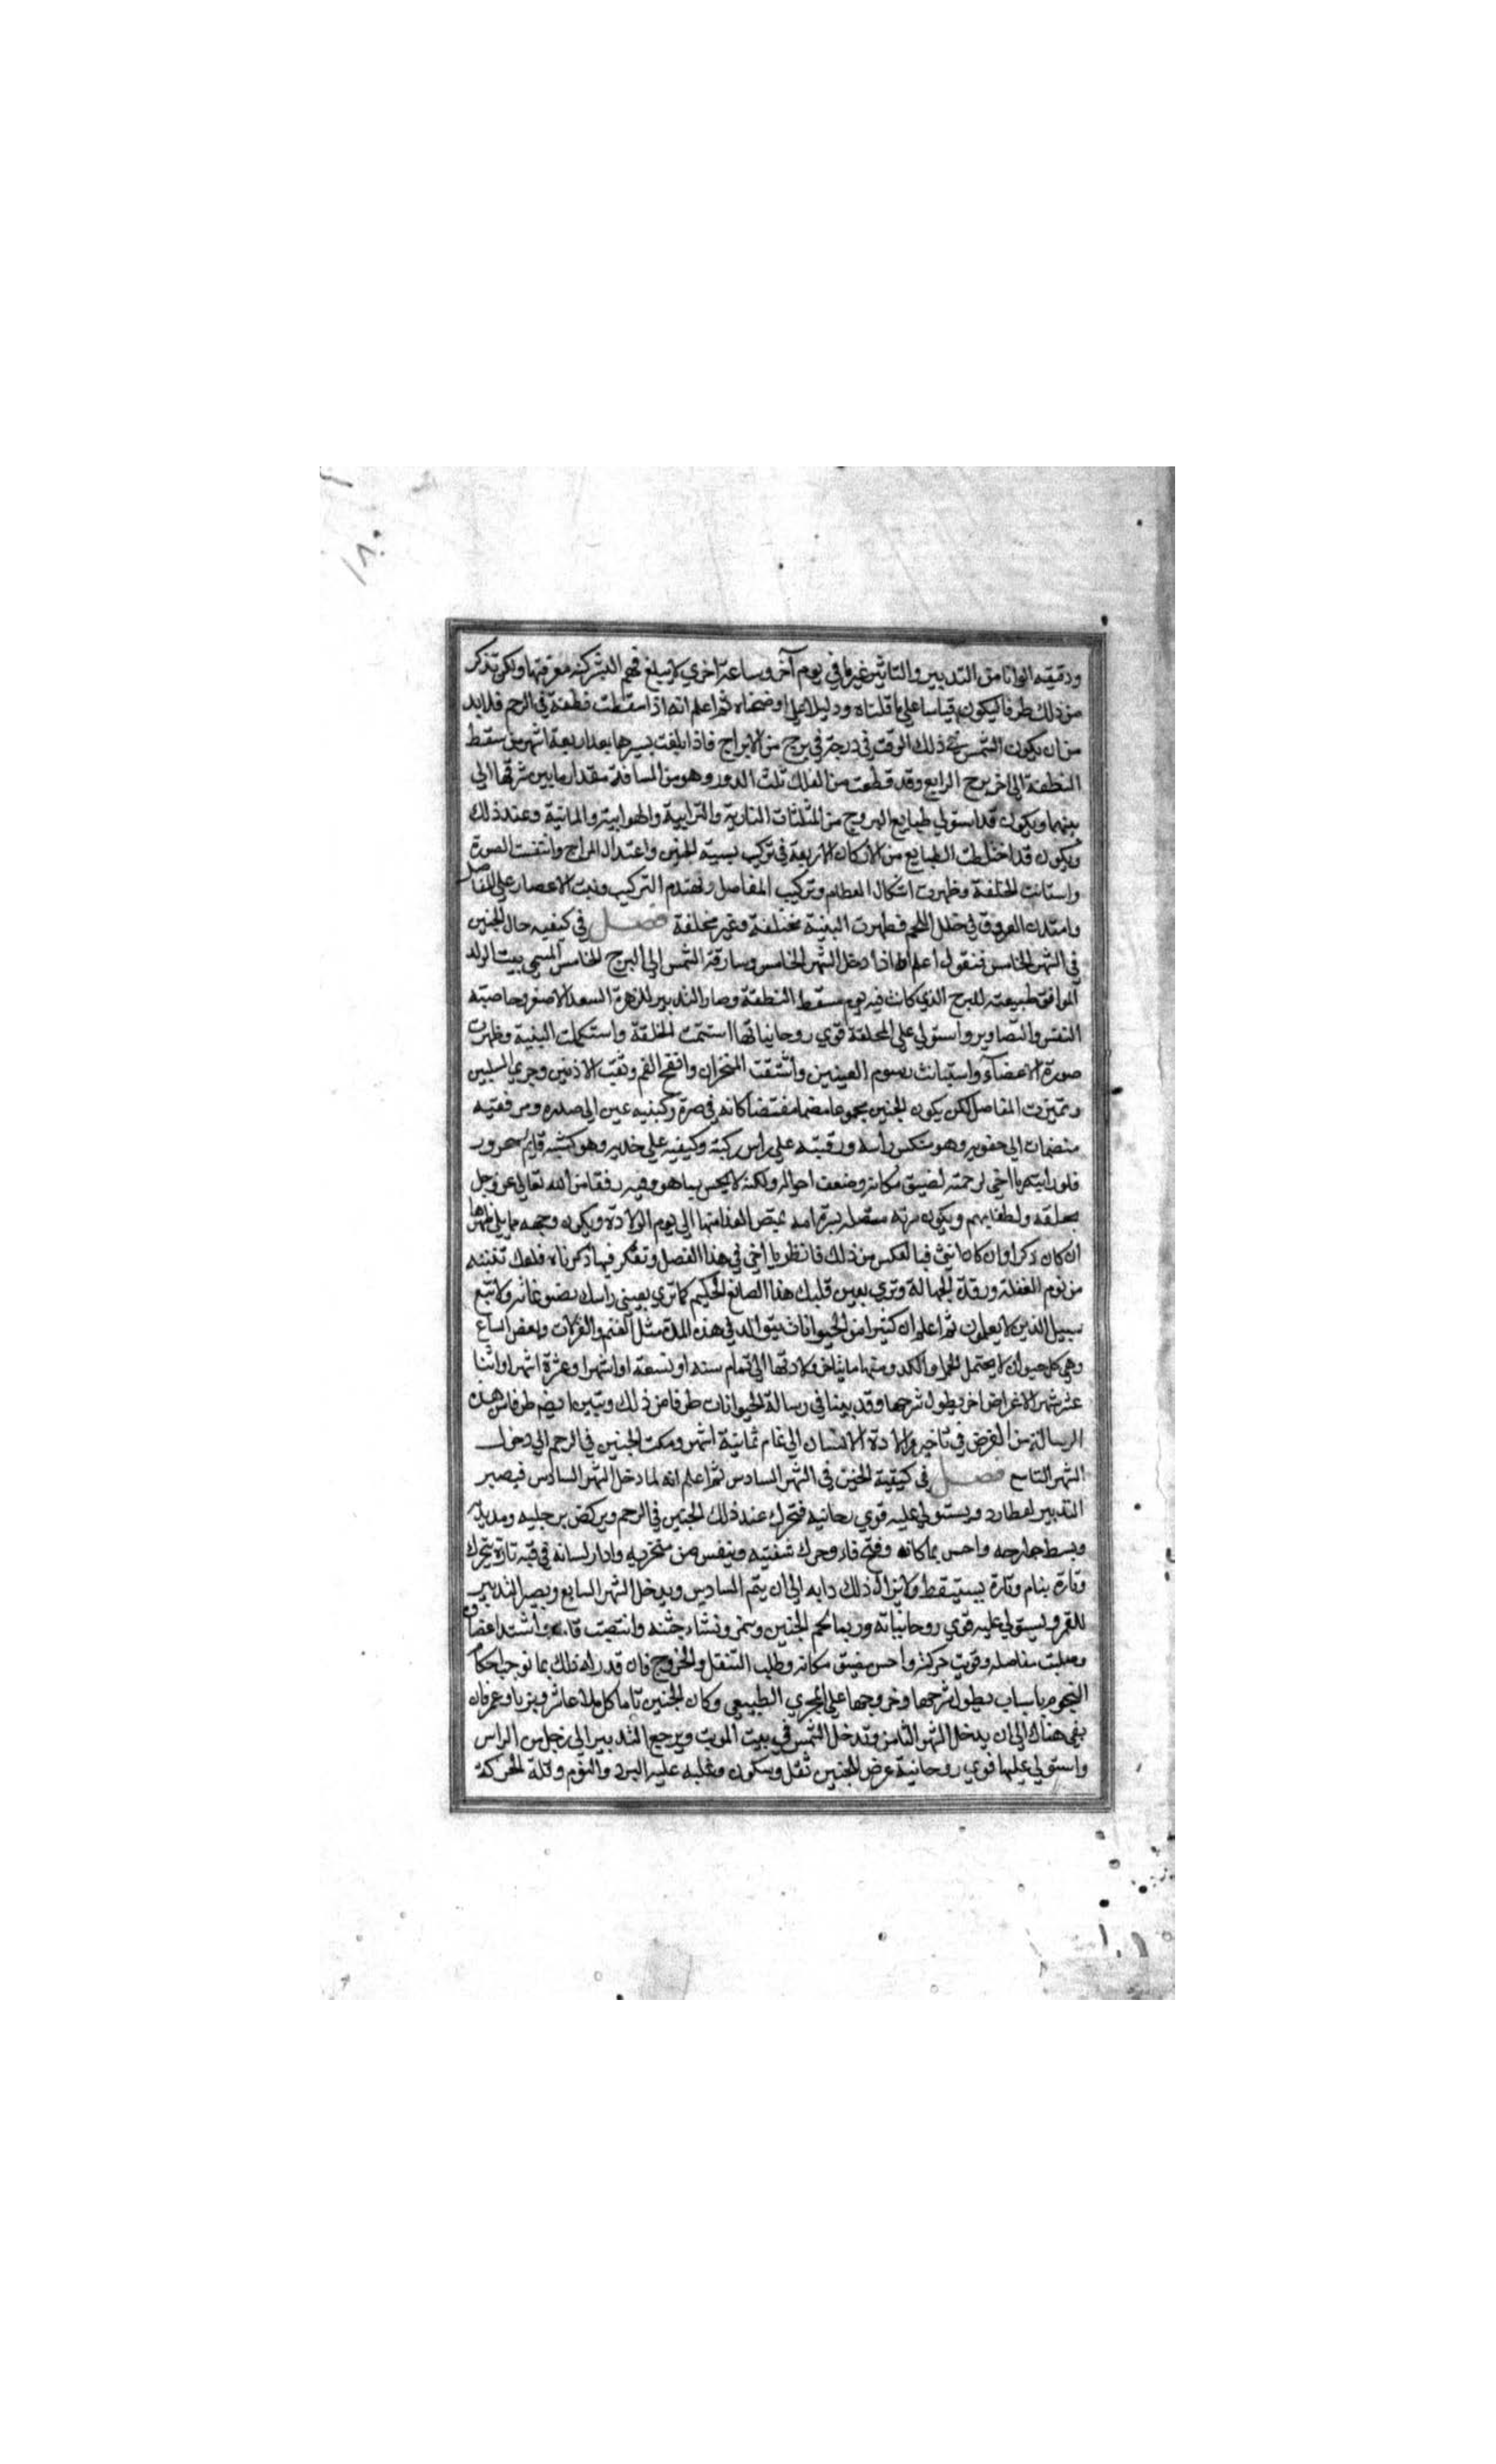 ١٨٠
ودقيقه الوانا من التدبير والتاثير غير ما في يوم آخر وساعة اخري لا يبلغ فهم البشر كنه معرفتها ولكن نذكر
من ذلك طرفا ليكون قياسا علي ما قلناه ودليلا علي ما وضحناه ثم اعلم انه اذا سقطت نطفة في الرحم فلا بد
من ان يكون الشمس في ذلك الوقت في درجة في برج من الابراج فاذا بلغت بسيرها بعد اربعة اشهر من سقط
النطفة الي اخر برج الرابع وقد قطعت من الفلك ثلث الدور وهو من المسافة مقدار ما بين شرقها الي
بينهما ويكون قد استولي طبايع البروج من المثلثات النارية والترابية والهوايية والمائية وعند ذلك
ويكون قد اختلطت الطبايع من الاركان الاربعة في تركيب بنية الجنين واعتدال المزاج وانتقشت الصورة
واستبانت الخلقة وظهرت اشكال العظام وتركيب المفاصل وتهندم التركيب ونبت الاعصاب علي المفاصل
وامتدت العروق في خلل اللحم فظهرت البنية مختلفة وغير مخلقة فصل في كيفيه حال الجنين
في الشهر الخامس فنقول اعلم انه اذا دخل الشهر الخامس وسارت الشمس الي البرج الخامس المسمي بيت الولد
الموافق طبيعته للبرج الذي كانت فيه يوم مسقط النطفة وصار التدبير للزهرة السعد الاصغر وخاصيته
النقش والتصاوير واستولي علي المخلقة قوي روحانياتها استتمت الخلقة واستكملت البنية وظهرت
صورة الاعضآء واستبانت رسوم العينين وانشقت المنخران وانفتح الفم وثقبت الاذنين وجري السبيلين
وتميزت المفاصل لكن يكون الجنين مجموعا منضما منقبضا كانه في صرة وركبتيه الي صدره ومرفقيه
منضمات الي حقويه وهو منكس راسه ورقبته علي راس ركبته وكفيه علي خديه وهو كشبه قايم محرور
فلو رايته يا اخي لرحمته لضيق مكانه وضعف احواله ولكنه لا يحس بما هو فيه رفقا من الله تعالي عز وجل
بخلقه ولطفا بهم ويكون سرته متصله بسرة امه يمتص الغذا منها الي يوم الولادة ويكون وجهه مما يلي ظهرها
ان كان ذكرا وان كان انثي فبالعكس من ذلك فانظر يا اخي في هذا الفصل وتفكر فيما ذكرناه فلعلك تنتبه
من نوم الغفلة ورقدة الجهالة وتري بعين قلبك هذا الصانع الحكيم كما تري بعيني راسك مصنوعاته ولا تتبع
سبيل الذين لا يعلمون ثم اعلم ان كثيرا من الحيوانات يتوالد في هذه المدة مثل الغنم والغزلان وبعض السباع
وهي كل حيوان لا يحتمل الحمل والكد ومنها ما يتاخر ولادتها الي تمام سنه او تسعة اشهر او عشرة اشهر او اثنا
عشر شهر الاغراض اخر يطول شرحها وقد بينا في رسالة الحيوانات طرفا من ذلك ونبين ايضا طرفا من هذه
الرسالة من الغرض في تاخير ولادة الانسان الي تمام ثمانية اشهر ومكث الجنين في الرحم الي دخول
الشهر التاسع فصل في كيفية الجنين في الشهر السادس ثم اعلم انه لما دخل الشهر السادس فيصير
التدبير لعطارد ويستولي عليه قوي رحانيه فتحرك عند ذلك الجنين في الرحم ويركض برجليه ومد يديه
وبسط جوارحه واحس بمكانه وفتح فاه وحرك شفتيه وينفس من منخريه وادار لسانه في فيه تارة يتحرك
وتارة ينام وتارة يستيقظ ولا يزال ذلك دابه الي ان يتم السادس ويدخل الشهر السابع ويصير التدبير
للقمر ويستولي عليه قوي روحانياته وربما لحم الجنين وسمن ونشاء جثته وانتصبت قامته واشتد اعضاؤه
وصلبت مفاصله وقويت حركته واحس بضيق مكانه وطلب التنقل والخروج فان قدر له ذلك بما توجب احكام
النجوم باسباب يطول شرحها وخروجها علي المجري الطبيعي وكان الجنين تاما كاملا عاش ويزبا وعمر فان
بقي هناك الي ان يدخل الشهر الثامن وتدخل الشمس في بيت الموت ويرجع التدبير الي زحل من الراس
واستولي عليها قوي روحانية عرض للجنين ثقل وسكون وغلبه عليه البرد والنوم وقلة الحركة